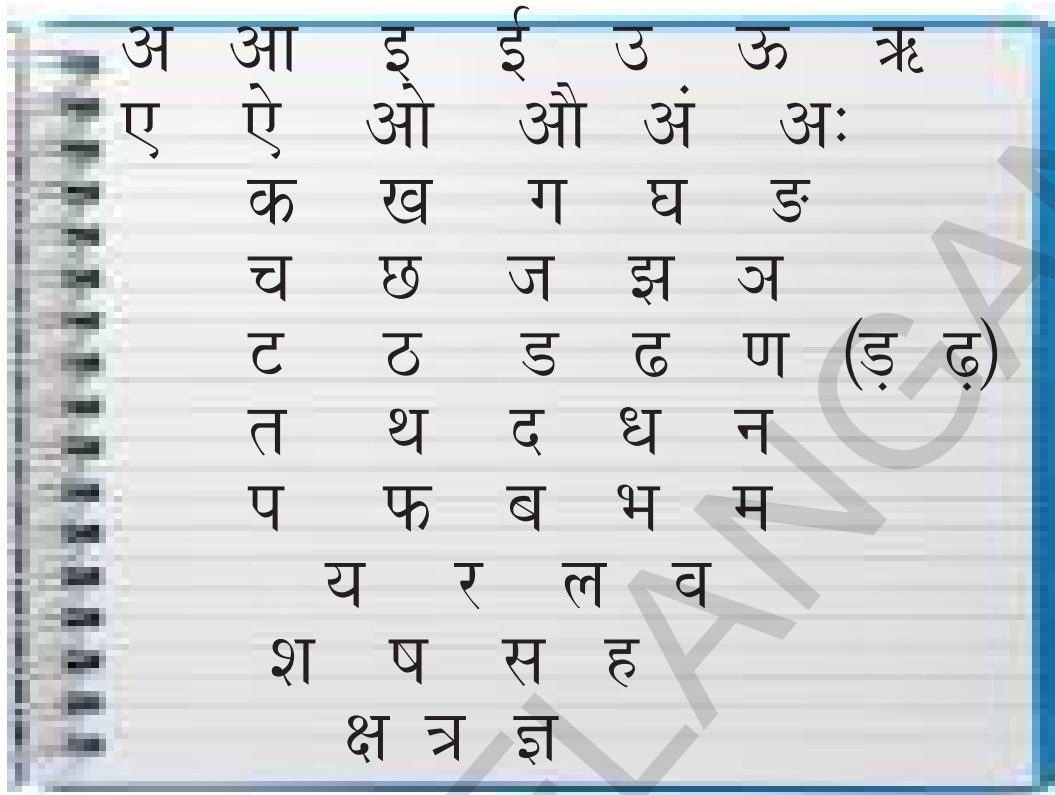 अ आ इ ई उ ऊ ऋ
ए ऐ ओ औ अं अः
क ख ग घ ङ
च छ ज झ ञ
ट ठ ड ढ ण (ड़ ढ़)
त थ द ध न
प फ ब भ म
य र ल व
श ष स ह
क्ष त्र ज्ञ